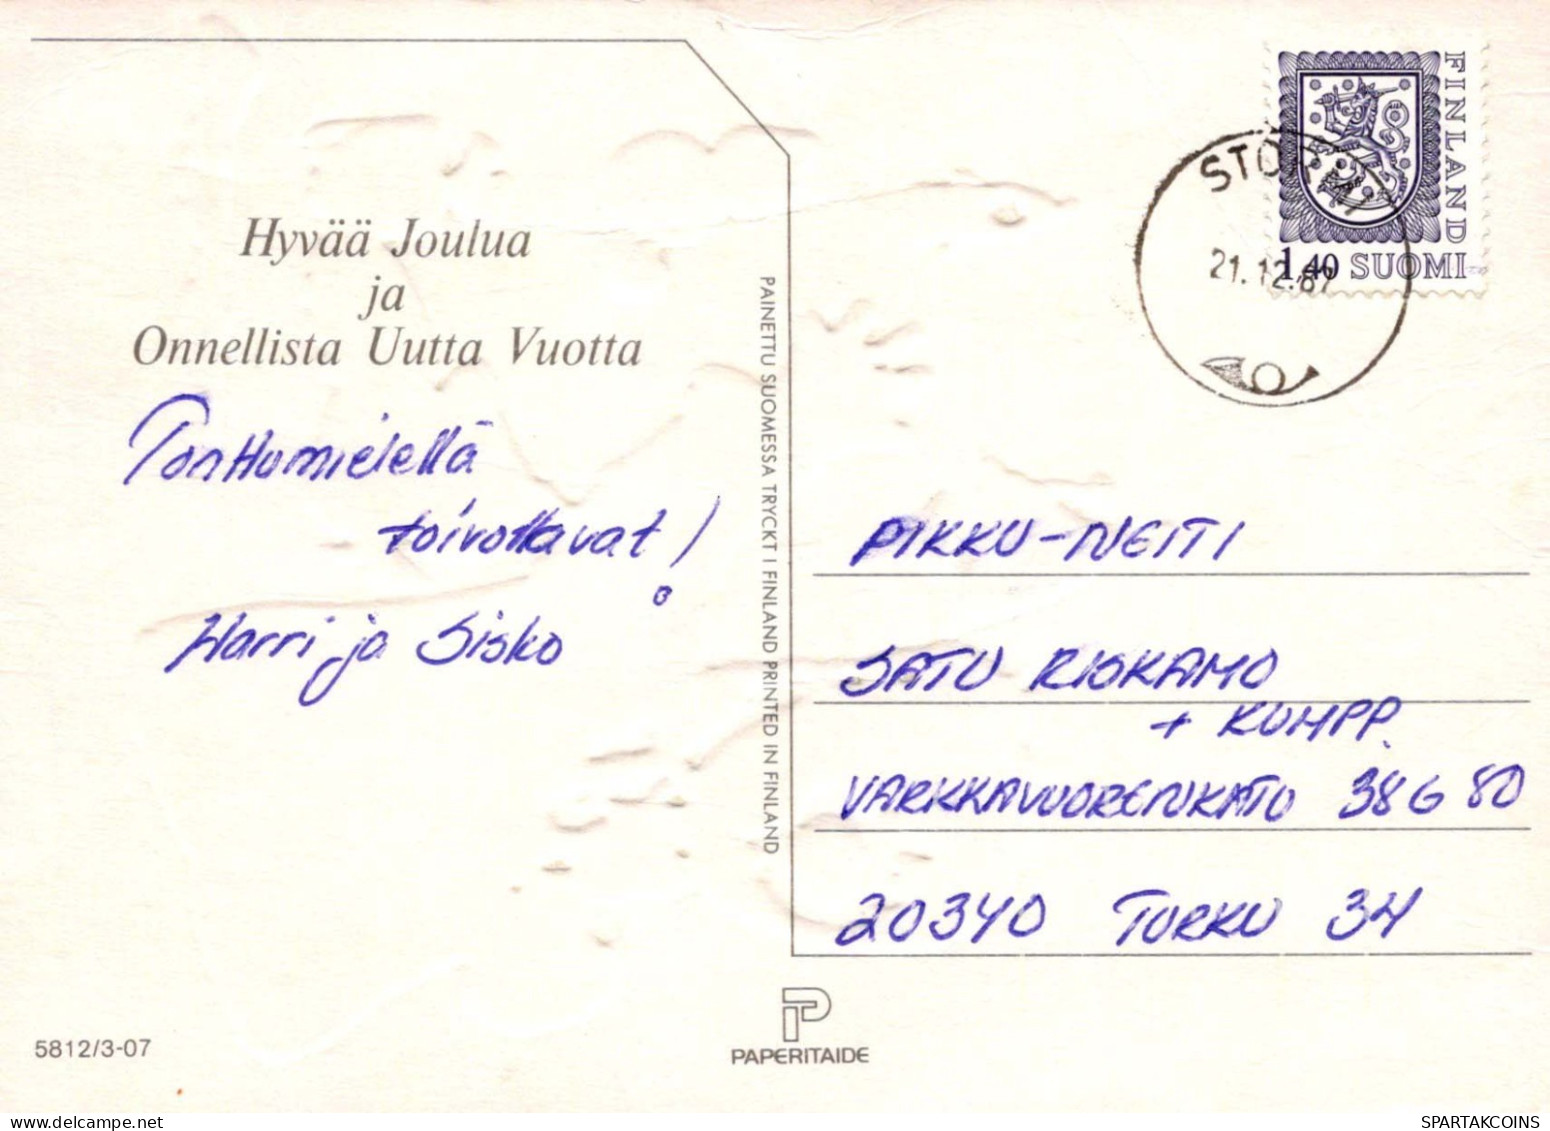 Hyvää Joulua
ja
Onnellista Uutta Vuotta
TonHumielellä
toivottavat!
Harri ja Sisko
5812/3-07
PAINETTU SUOMESSA TRYCKT I FINLAND PRINTED IN FINLAND
FINLAND
1,40 SUOMI
21.12.87
PIKKU-NEITI
SATU RISKAMO
+ KUMPP.
VARKKAVUORENKATU 38 G 80
20340 TURKU 34
PAPERITAIDE
delcampe.net
SPARTAKCOINS